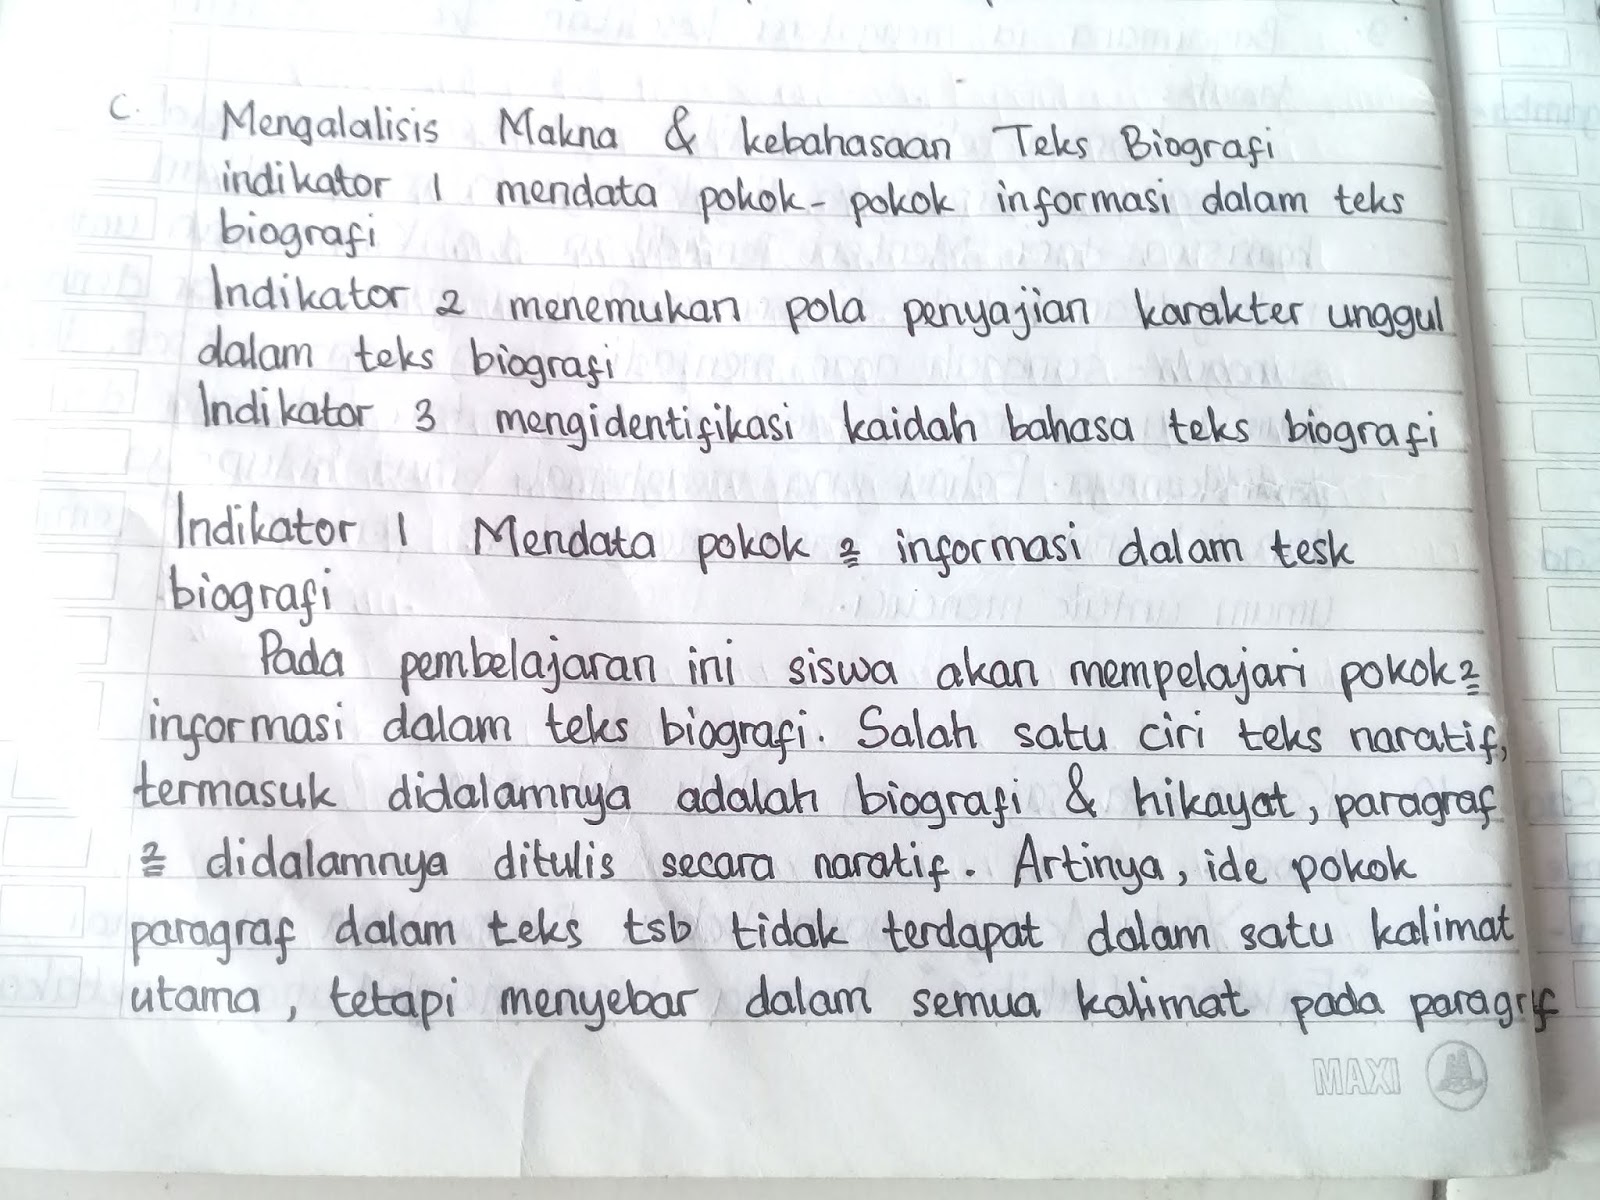 C. Mengalalisis Makna & kebahasaan Teks Biografi
indikator 1 mendata pokok-pokok informasi dalam teks
biografi
Indikator 2 menemukan pola penyajian karakter unggul
dalam teks biografi
Indikator 3 mengidentifikasi kaidah bahasa teks biografi
Indikator 1 Mendata pokok 2 informasi dalam tesk
biografi
Pada pembelajaran ini siswa akan mempelajari pokok2
informasi dalam teks biografi. Salah satu ciri teks naratif,
termasuk didalamnya adalah biografi & hikayat, paragraf
2 didalamnya ditulis secara naratif. Artinya, ide pokok
paragraf dalam teks tsb tidak terdapat dalam satu kalimat
utama, tetapi menyebar dalam semua kalimat pada paragrf
MAXI